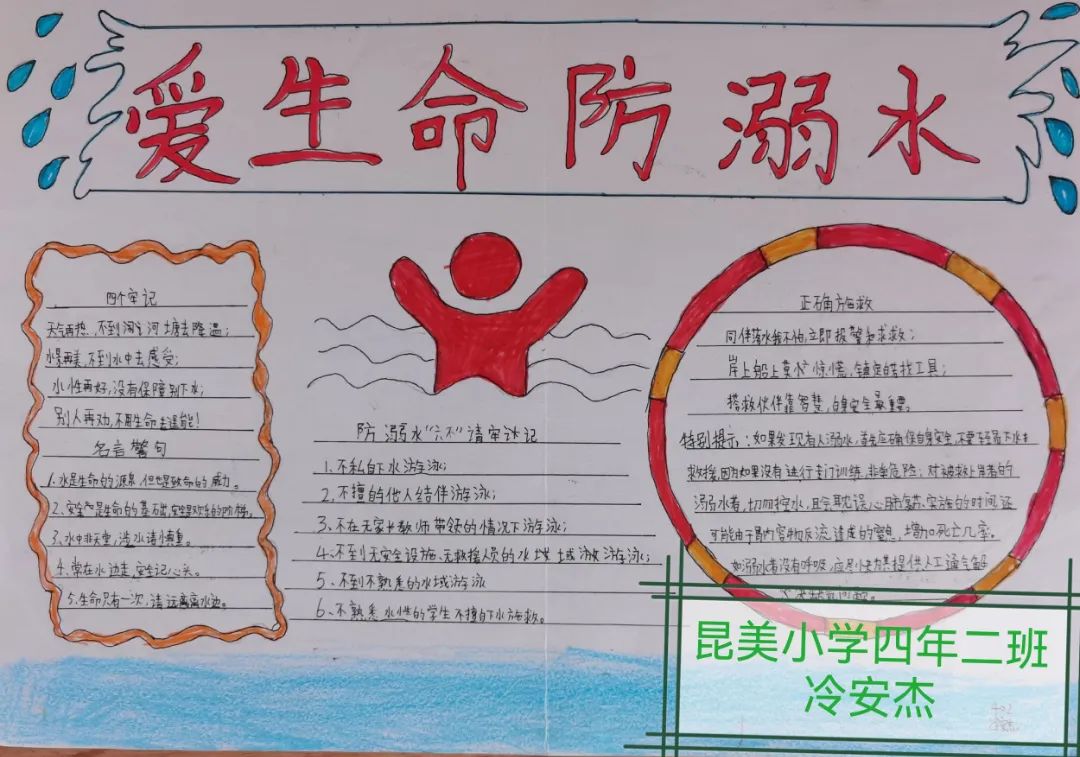 爱生命防溺水
四个牢记
天气再热,不到河塘去降温;
水景再美,不到水中去感受;
水性再好,没有保障别下水;
别人再劝,不用生命去逞能!
名言警句
1.水是生命的源泉,但也是致命的威力。
2.安全是生命的基础,安全是欢乐的阶梯。
3.水中非天堂,涉水请慎重。
4.常在水边走,安全记心头。
5.生命只有一次,请远离水边。
防溺水“六不”请牢记
1.不私自下水游泳;
2.不擅自与他人结伴游泳;
3.不在无家长教师带领的情况下游泳;
4.不到无安全设施、无救援人员的水域游泳;
5.不到不熟悉的水域游泳
6.不熟悉水性的学生不擅自下水施救。
正确施救
同伴落水我不怕,立即报警和求救;
岸上船上莫惊慌,镇定找工具;
搭救伙伴靠智慧,自身安全最重要。
特别提示:如果发现有人溺水,首先应确保自身安全,不要轻易下水
救援,因为如果没有进行专门训练,非常危险;对被救上岸的
溺水者,切勿控水,且会耽误心肺复苏实施的时间,还
可能由于胃内容物反流造成的窒息,增加死亡几率。
如溺水者没有呼吸,应尽快为其提供人工通气
昆美小学四年二班
冷安杰
402